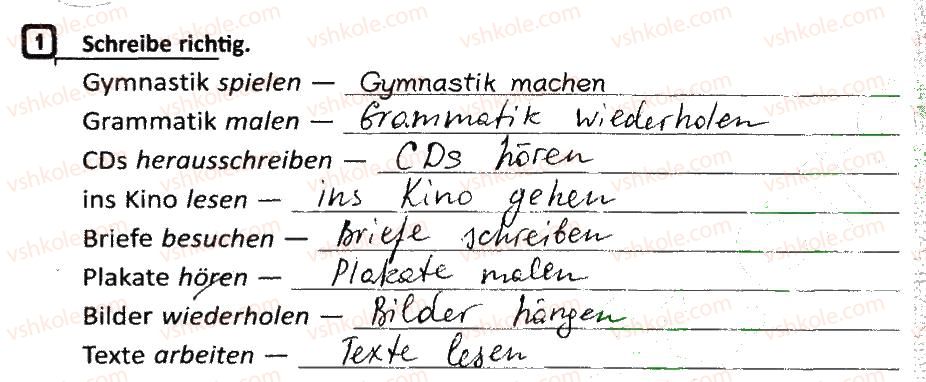 1 Schreibe richtig.
Gymnastik spielen — Gymnastik machen
Grammatik malen — Grammatik wiederholen
CDs herausschreiben — CDs hören
ins Kino lesen — ins Kino gehen
Briefe besuchen — Briefe schreiben
Plakate hören — Plakate malen
Bilder wiederholen — Bilder hängen
Texte arbeiten — Texte lesen